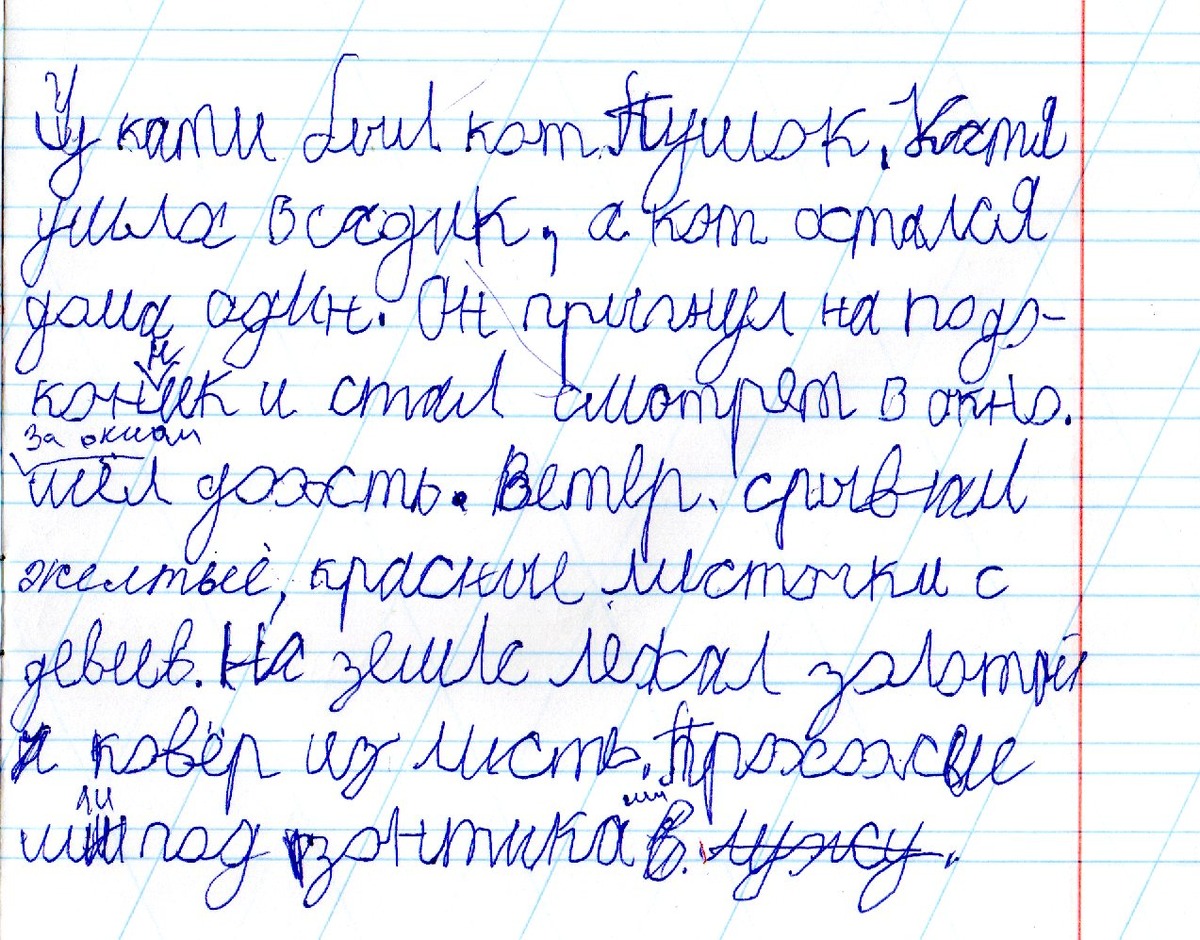 У кати был кот Пушок. Катя
ушла в садик, а кот остался
дома один. Он пригнул на подо-
конник и стал смотрет в окно.
за окном
шёл дожсть. Ветер срывал
желтые, красные листочки с
девев. На земле лежал золотой
ковёр из листь. Прохожие
шли под зонтиками